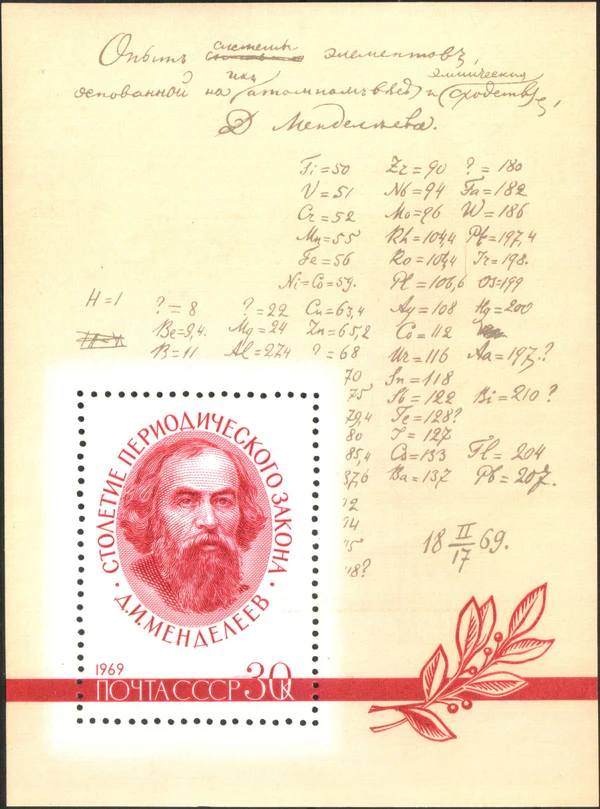 Опытъ системы элементовъ,
основанной на ихъ атомномъ вѣсѣ и химическомъ сходствѣ,
Д Менделѣева.
Ti=50 Zr=90 ?=180
V=51 Nb=94 Ta=182
Cr=52 Mo=96 W=186
Mn=55 Rh=104,4 Pt=197,4
Fe=56 Ro=104,4 Ir=198.
Ni=Co=59. Pl=106,6 Os=199
H=1 ?=8 ?=22 Cu=63,4 Ag=108 Hg=200
Be=9,4. Mg=24 Zn=65,2 Cd=112
B=11 Al=27,4 ?=68 Ur=116 Au=197.?
70 Sn=118
75 Sb=122 Bi=210?
79,4 Te=128?
80 J=127
85,4 Cs=133 Tl=204
87,6 Ba=137 Pb=207.
СТОЛЕТИЕ ПЕРИОДИЧЕСКОГО ЗАКОНА
· Д.И.МЕНДЕЛЕЕВ ·
18 II/17 69.
'18?
1969
ПОЧТА СССР 30 К